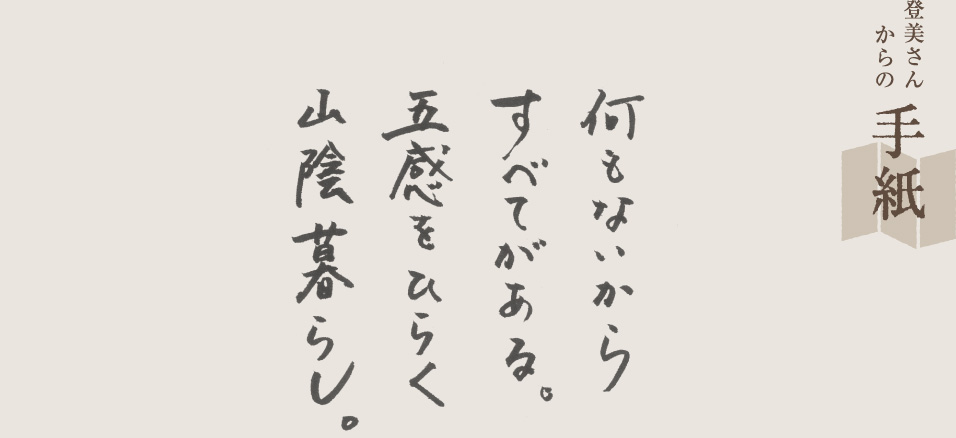 登美さん
からの
手紙
何もないから
すべてがある。
五感をひらく
山陰暮らし。